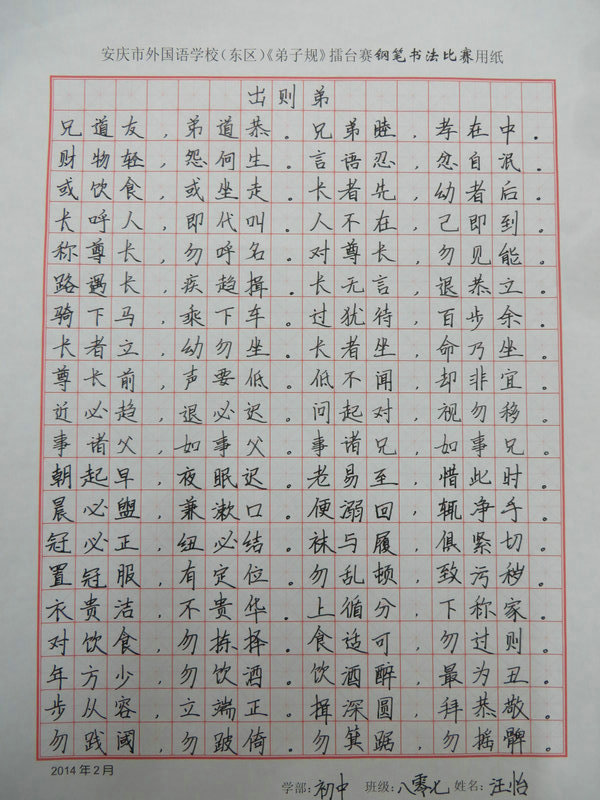 安庆市外国语学校(东区)《弟子规》擂台赛钢笔书法比赛用纸
出则弟
兄道友,弟道恭。兄弟睦,孝在中。
财物轻,怨何生。言语忍,忿自泯。
或饮食,或坐走。长者先,幼者后。
长呼人,即代叫。人不在,己即到。
称尊长,勿呼名。对尊长,勿见能。
路遇长,疾趋揖。长无言,退恭立。
骑下马,乘下车。过犹待,百步余。
长者立,幼勿坐。长者坐,命乃坐。
尊长前,声要低。低不闻,却非宜。
近必趋,退必迟。问起对,视勿移。
事诸父,如事父。事诸兄,如事兄。
朝起早,夜眠迟。老易至,惜此时。
晨必盥,兼漱口。便溺回,辄净手。
冠必正,纽必结。袜与履,俱紧切。
置冠服,有定位。勿乱顿,致污秽。
衣贵洁,不贵华。上循分,下称家。
对饮食,勿拣择。食适可,勿过则。
年方少,勿饮酒。饮酒醉,最为丑。
步从容,立端正。揖深圆,拜恭敬。
勿践阈,勿跛倚。勿箕踞,勿摇髀。
2014年2月
学部:初中 班级:八零七 姓名:汪怡